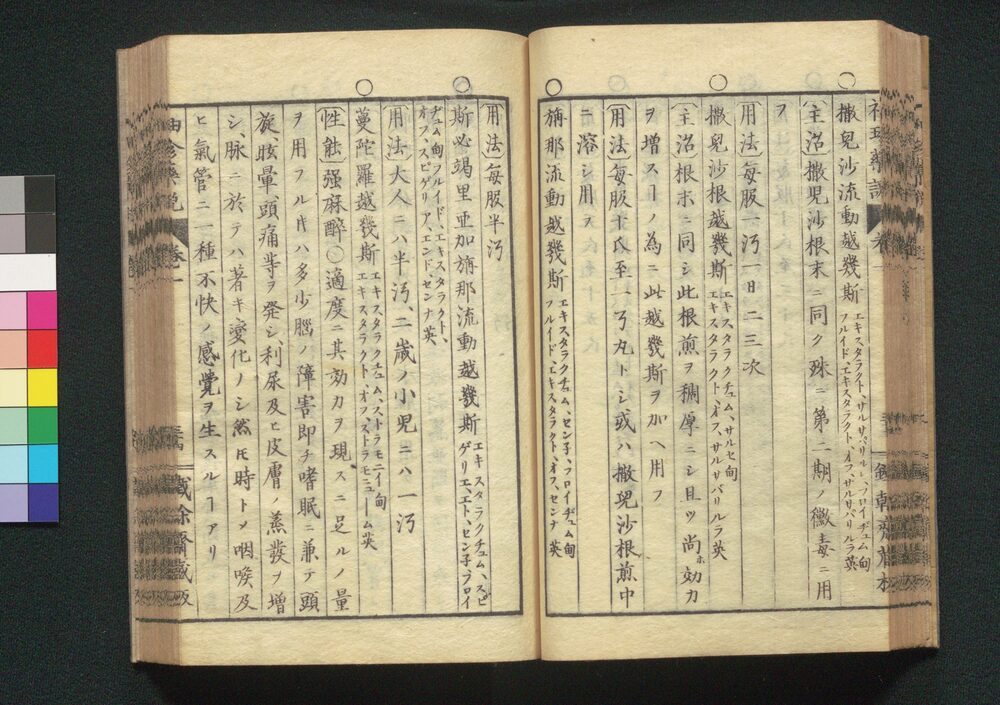 撒兒沙流動越幾斯 エキスタラクト、サルサパリルレ、フロイヂュム甸
フルイド、エキスタラクト、オフ、サルサパリルラ英
〔主治〕撒児沙根末ニ同ク殊ニ第二期ノ黴毒ニ用
ヲ
〔用法〕毎服一汚一日二三次
撒兒沙根越幾斯 エキスタラクチュム、サルセ甸
エキスタラクト、オフ、サルサパリルラ英
〔主治〕根末ニ同シ此根煎ヲ稠厚ニシ且ツ尚ホ効力
ヲ増スヿノ為ニ此越幾斯ヲ加ヘ用フ
〔用法〕毎服十氏至一丂丸トシ或ハ撒児沙根煎中
ニ溶シ用ヌ
旃那流動越幾斯 エキスタラクチュム、センチ、フロイヂュム甸
フルイド、エキスタラクト、オフ、センナ英
〔用法〕毎服半汚
斯必竭里亜加旃那流動越幾斯 エキスタラクチュム、スピ
ゲリエ、エト、センチ、フロイ
ヂュム甸フルイド、エキスタラクト、
オフ、スピゲリア、エンド、センナ英
〔用法〕大人ニハ半汚、二歳ノ小児ニハ一汚
蔓陀羅越幾斯 エキスタラクチュム、ストラモニイ甸
エキスタラクト、オフ、ストラモニューム英
〔性能〕强麻醉〇適度ニ其効力ヲ現スニ足ルノ量
ヲ用フルキハ多少腦ノ障害即チ嗜眠ニ兼テ頭
旋、眩暈頭痛等ヲ発シ、利尿及ヒ皮膚ノ蒸發ヲ増
シ、脈ニ於テハ著キ変化ノシ然𪜈時トメ咽喉及
ヒ氣管ニ一種不快ノ感覺ヲ生スルヿアリ